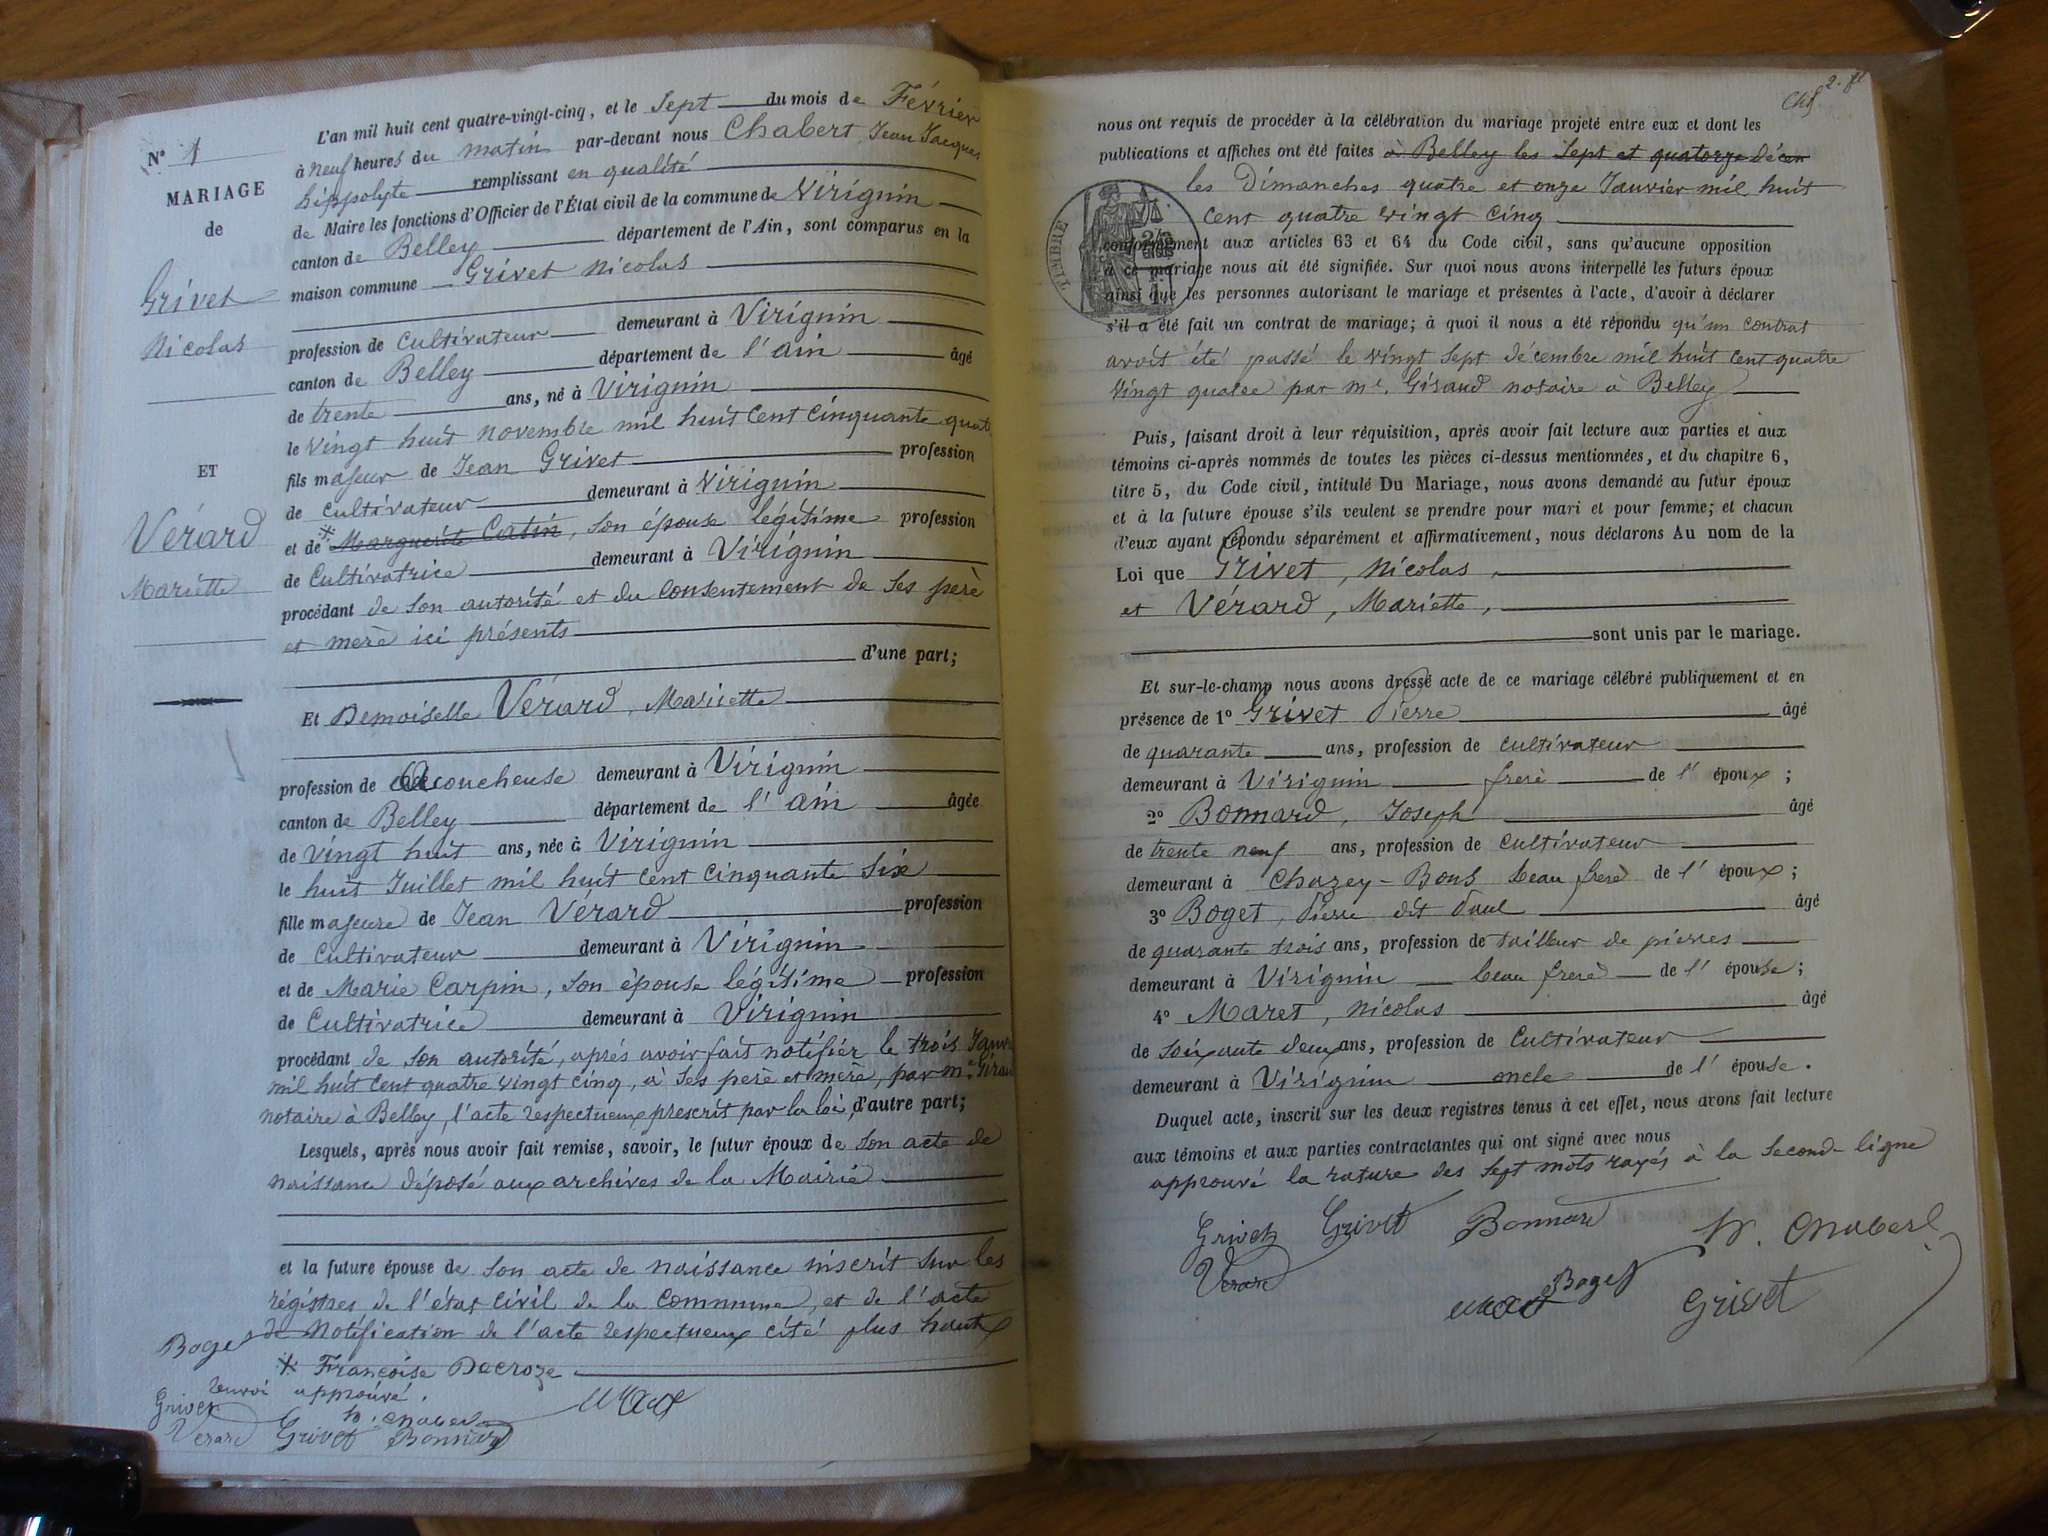 N° 1
MARIAGE
de
Grivet
Nicolas
ET
Vérard
Mariette
L'an mil huit cent quatre-vingt-cinq, et le Sept du mois de Février
à neuf heures du matin par-devant nous Chabert, Jean Jacques
hippolyte remplissant en qualité
de Maire les fonctions d'Officier de l'État civil de la commune de Virignin
canton de Belley département de l'Ain, sont comparus en la
maison commune Grivet Nicolas
profession de Cultivateur demeurant à Virignin
canton de Belley département de l'ain âgé
de trente ans, né à Virignin
le vingt huit novembre mil huit cent cinquante quat
fils majeur de Jean Grivet profession
de cultivateur demeurant à Virignin
et de * Marguerite Catin, son épouse légitime profession
de Cultivatrice demeurant à Virignin
procédant de son autorité et du consentement de ses perè
et merè ici présents
d'une part;
Et Demoiselle Vérard, Mariette
profession de Accoucheuse demeurant à Virignin
canton de Belley département de l'ain âgée
de vingt huit ans, née à Virignin
le huit Juillet mil huit cent cinquante six
fille majeure de Jean Vérard profession
de Cultivateur demeurant à Virignin
et de Marie Carpin, son épouse légitime profession
de Cultivatrice demeurant à Virignin
procédant de son autorité, aprés avoir fait notifier le trois Janv
mil huit cent quatre vingt cinq, à ses perè et merè, par me Girau
notaire à Belley, l'acte respectueux prescrit par la loi, d'autre part;
Lesquels, après nous avoir fait remise, savoir, le futur époux de son acte de
naissance déposé aux archives de la Mairie
et la future épouse de son acte de naissance inscrit sur les
régistres de l'état civil de la commune, et de l'acte
de notification de l'acte respectueux cité plus haut
* Françoise Decroze
Boget
renvoi approuvé.
Grivet
h. Chabert
Verard Grivet Bonnard
Maret
2. fl
nous ont requis de procéder à la célébration du mariage projeté entre eux et dont les
publications et affiches ont été faites à Belley les Sept et quatorze décem
les Dimanches quatre et onze Janvier mil huit
cent quatre vingt cinq
TIMBRE
conformément aux articles 63 et 64 du Code civil, sans qu'aucune opposition
à ce mariage nous ait été signifiée. Sur quoi nous avons interpellé les futurs époux
ainsi que les personnes autorisant le mariage et présentes à l'acte, d'avoir à déclarer
s'il a été fait un contrat de mariage; à quoi il nous a été répondu qu'un contrat
avoit été passé le vingt sept décembre mil huit cent quatre
vingt quatre par me. Giraud notaire à Belley
Puis, faisant droit à leur réquisition, après avoir fait lecture aux parties et aux
témoins ci-après nommés de toutes les pièces ci-dessus mentionnées, et du chapitre 6,
titre 5, du Code civil, intitulé Du Mariage, nous avons demandé au futur époux
et à la future épouse s'ils veulent se prendre pour mari et pour femme; et chacun
d'eux ayant répondu séparément et affirmativement, nous déclarons Au nom de la
Loi que Grivet, Nicolas,
et Vérard, Mariette,
sont unis par le mariage.
Et sur-le-champ nous avons dressé acte de ce mariage célébré publiquement et en
présence de 1° Grivet Pierre âgé
de quarante ans, profession de cultivateur
demeurant à Virignin frerè de l'époux;
2° Bonnard, Joseph âgé
de trente neuf ans, profession de cultivateur
demeurant à Chazey-Bons beau frerè de l'époux;
3° Boget, Pierre dit Paul âgé
de quarante trois ans, profession de tailleur de pierres
demeurant à Virignin beau frerè de l'épouse;
4° Maret, Nicolas âgé
de soixante deux ans, profession de Cultivateur
demeurant à Virignin oncle de l'épouse.
Duquel acte, inscrit sur les deux registres tenus à cet effet, nous avons fait lecture
aux témoins et aux parties contractantes qui ont signé avec nous
approuvé la rature des Sept mots rayés à la second ligne
Grivet Grivet Bonnard h. Chabert
Verard
Maret Boget Grivet